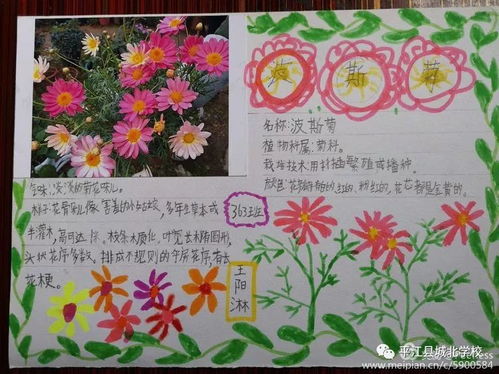 波斯菊
名称:波斯菊
植物种属:菊科。
栽培技术用扦插繁殖或播种。
颜色:花瓣有的红的、粉红的,花芯都是金黄的。
气味:淡淡的菊花味儿。
样子:花骨朵儿像害羞的小姑娘,多年生草本或
半灌木,高可达1米,枝条木质化,叶宽长椭圆形,
头状花序多数,排成不规则的伞房花序,有长
花梗。
363班
王阳淋
平江县城北学校
www.meipian.cn/c/5900584